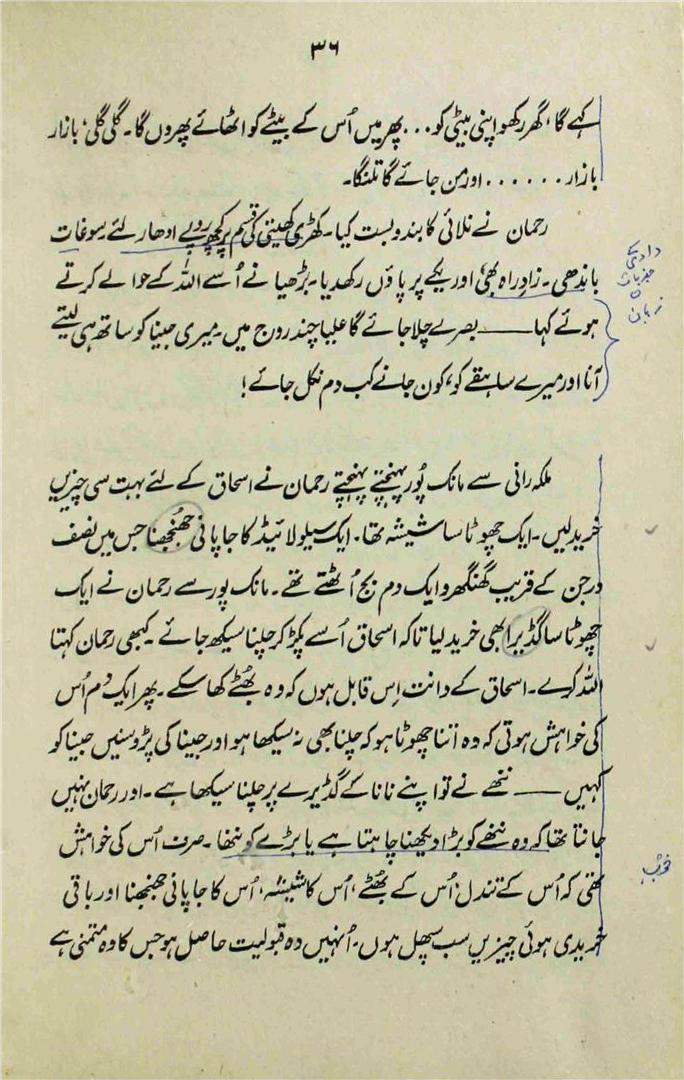 ۳۶
کہے گا، گھر رکھو اپنی بیٹی کو... پھر میں اُس کے بیٹے کو اٹھائے پھروں گا۔ گلی گلی، بازار
بازار...... اور من جائے گا تلنگا۔
رحمان نے نلائی کا بندوبست کیا۔ کھڑی کھیتی کی قسم پر کچھ روپے ادھار لئے سوغات
باندھی۔ زادِ راہ بھی اور یکے پر پاؤں رکھدیا۔ بڑھیا نے اُسے اللہ کے حوالے کرتے
ہوئے کہا —— بصرے چلا جائے گا علیا چند روج میں۔ میری جینا کو ساتھ ہی لیتے
آنا اور میرے ساہقے کو، کون جانے کب دم نکل جائے!
دادی کے
جذبات
زبان
ملکہ رانی سے مانک پُور پہنچتے پہنچتے رحمان نے اسحاق کے لئے بہت سی چیزیں
خرید لیں۔ ایک چھوٹا سا شیشہ تھا۔ ایک سیلولائیڈ کا جاپانی جھنجھنا جس میں نصف
درجن کے قریب گھنگھرو ایک دم بج اُٹھتے تھے۔ مانک پور سے رحمان نے ایک
چھوٹا سا گڈیرا بھی خرید لیا تاکہ اسحاق اُسے پکڑ کر چلنا سیکھ جائے۔ کبھی رحمان کہتا
اللہ کرے۔ اسحاق کے دانت اِس قابل ہوں کہ وہ بھُٹے کھا سکے۔ پھر ایک دم اُس
کی خواہش ہوتی کہ وہ اتنا چھوٹا ہو کہ چلنا بھی نہ سیکھا ہو اور جینا کی پڑوسنیں جینا کو
کہیں —— ننھے نے تو اپنے نانا کے گڈیرے پر چلنا سیکھا ہے۔ اور رحمان نہیں
جانتا تھا کہ وہ ننھے کو بڑا دیکھنا چاہتا ہے یا بڑے کو ننھا۔ صرف اُس کی خواہش
تھی کہ اُس کے تندل اُس کے بھُٹے، اُس کا شیشہ، اُس کا جاپانی جھنجھنا اور باقی
خریدی ہوئی چیزیں سب سپھل ہوں۔ اُنہیں وہ قبولیت حاصل ہو جس کا وہ متمنی ہے
خوب